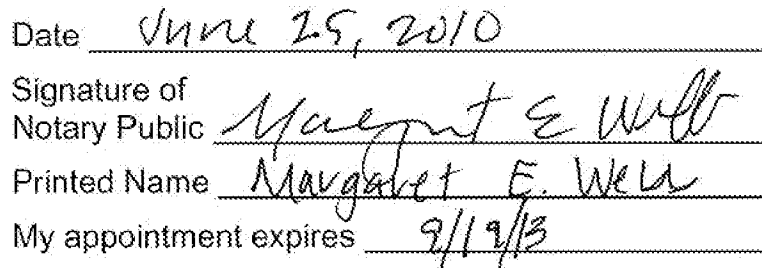 Date June 25, 2010
Signature of
Notary Public Margaret E Webb
Printed Name Margaret E. Webb
My appointment expires 9/19/13